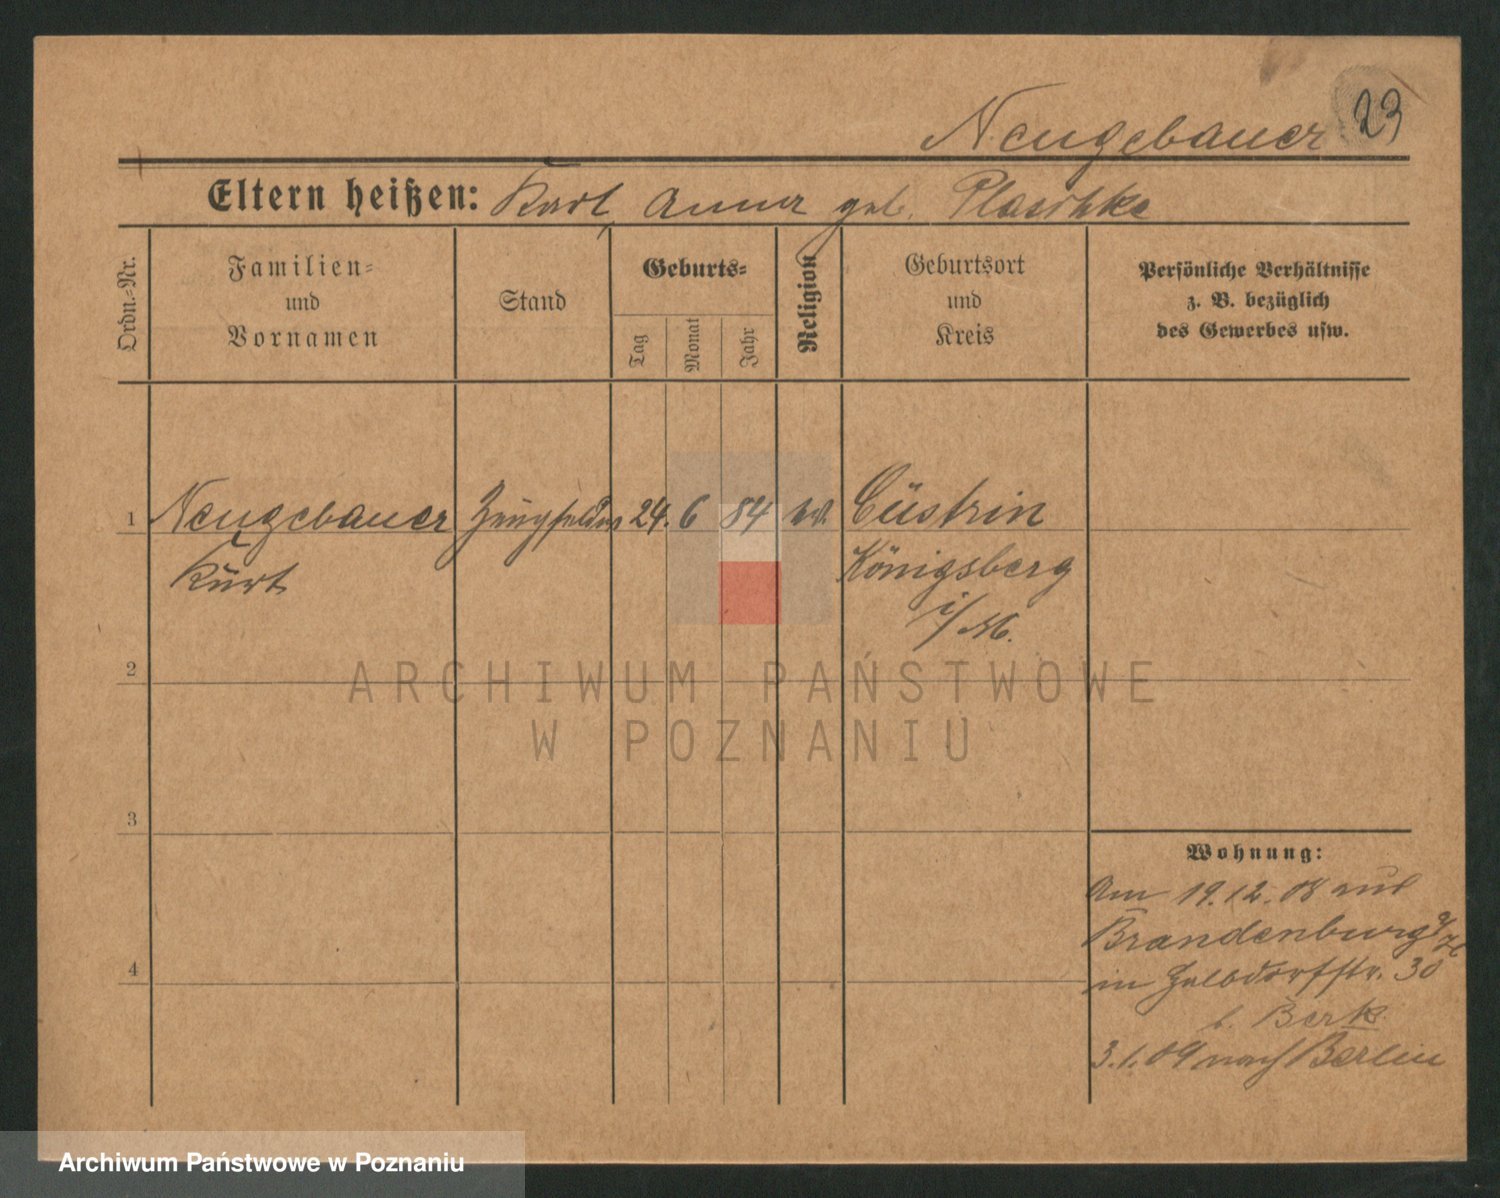 Neugebauer 23
Eltern heißen: Karl, Anna geb. Plaschke
Ordn.-Nr.
Familien-
und
Vornamen
Stand
Geburts-
Tag
Monat
Jahr
Religion
Geburtsort
und
Kreis
Persönliche Verhältnisse
z. B. bezüglich
des Gewerbes usw.
1 Neugebauer 24. 6 84 Cüstrin
Kurt Königsberg
i/M.
2
3
4
Wohnung:
Am 19.12.08 aus
Brandenburg a/H
in 30
b. Berk
3.1.09 nach Berlin
ARCHIWUM PAŃSTWOWE
W POZNANIU
Archiwum Państwowe w Poznaniu